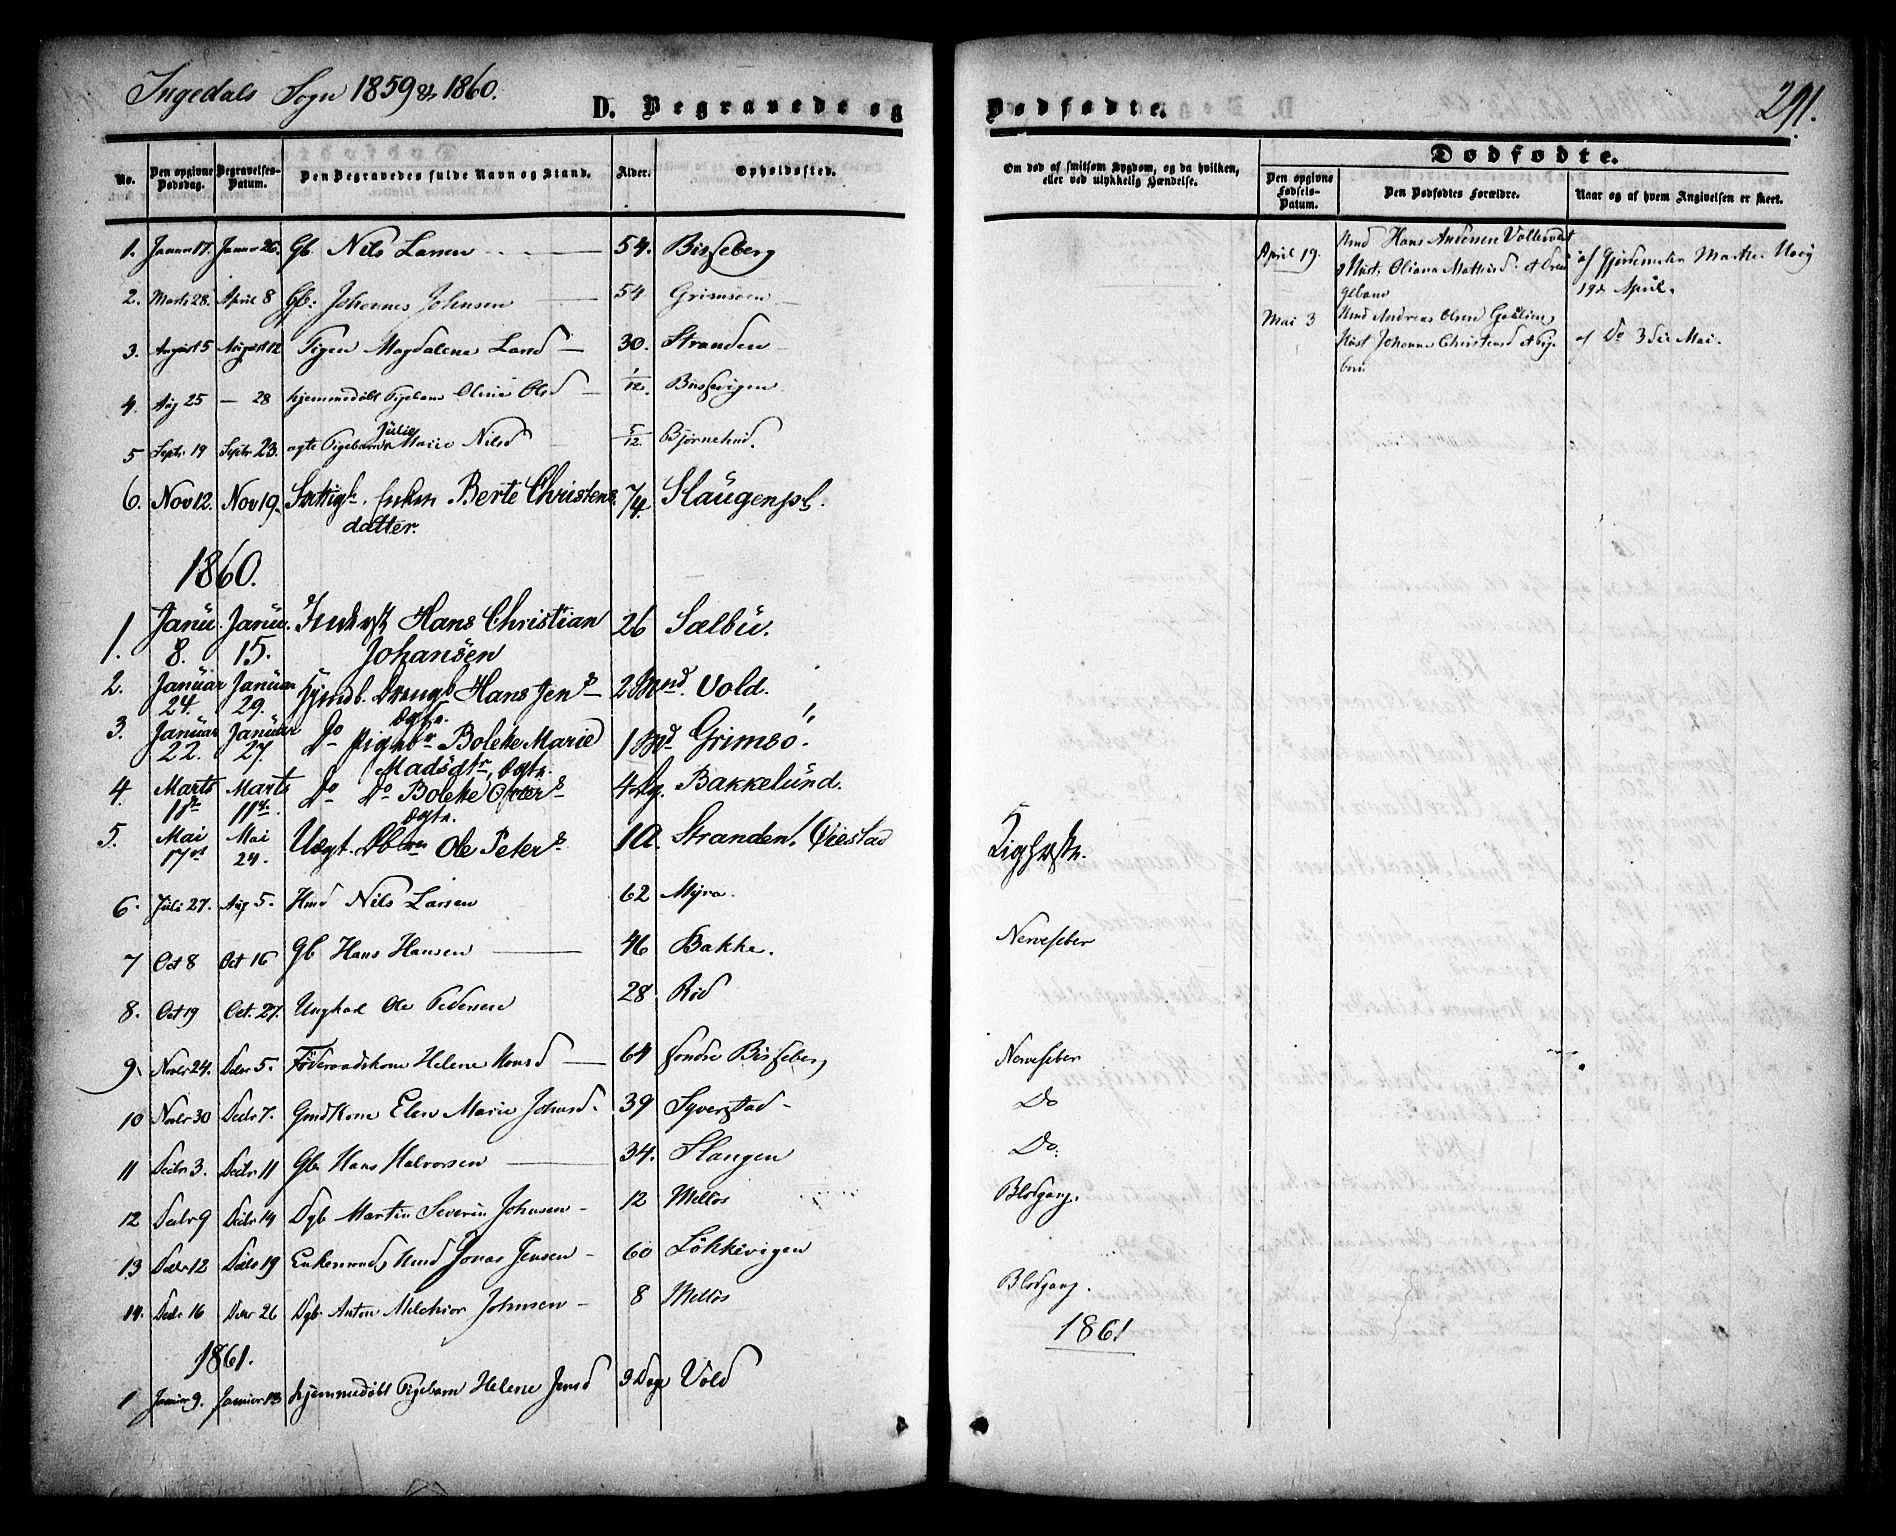 Ingedals Sogn 1859 & 1860.
D. Begravede og
No. Den opgivne Dødsdag. Begravelses-Datum. Den Begravedes fulde Navn og Stand. Alder. Opholdssted.
1. Januar 17. Januar 26. Gb Nils Larsen 54. Bisseberg
2. Marts 28. April 8 Gb: Johannes Johnsen 54. Grimsøen
3. August 5 August 12 Pigen Magdalena Larsd 30. Stranden
4. Aug 25 — 28 hjemmedøbt Pigebarn Oline Olsd 1/12. Bissevigen
5 Septr 19 Septr 23. ægte Pigebarn Julie Marie Nilsd 5/12. Bjørnehud.
6. Nov 12. Nov 19. Enken Berte Christens 74. Slaugenpl.
datter.
1860.
1. Janu. 8. Janu. 15. Hans Christian 26 Sælbu.
Johansen
2. Januar 24. Januar 29. Hjmdb. Drengb Hans Jens 2 Mnd. Vold.
ægte.
3. Januar 22. Januar 27. Do Pigeb Bolette Marie 1 Md Grimsö.
Madsdtr, ægte.
4. Marts Marts 11te. Do Do Bolette 4 Dg. Bakkelund.
ægte.
5. Mai 17de Mai 24. Uægt. Dbrn Ole Peter 10. Stranden
6. Juli 27. Aug 5. Hmd Nils Larsen 62 Myra.
7 Oct 8 Oct 16 Gb Hans Hansen 46 Bakke.
8. Oct 19 Oct. 27. Ungkarl Ole Pedersen 28 Röd
9. Novbr 24. Decbr 5. Föderaadskone Helene Hansd 64 søndre Bisseberg
10 Novbr 30 Decbr 7. Gmdkone Elen Marie Johnsd. 39 Syverstad
11 Decbr 3. Decbr 11 Gb Hans Halvorsen 34. Slangen
12 Decbr 9 Decbr 14 Dgb Martin Severin Johnsen 12 Mellös
13 Decbr 12 Decbr 19 Enkemand, Hmd Jonas Jensen 60 Lökkevigen
14. Decbr 16 Decbr 26 Dgb Anton Melchior Johnsen 8 Mellös
1861.
1 Januar 9. Januar 13 hjemmedöbt Pigebarn Helene Jensd 9 Dage Vold
Dødfødte.
291.
Om død af smitsom Sygdom, og da hvilken, eller ved ulykkelig Hændelse.
Dødfødte.
Den opgivne Fødsels-Datum. Den Dødfødtes Forældre. Naar og af hvem Angivelsen er skeet.
April 19. Hmd Hans Andersen
Hust. Oliana Mathisd. et Dren af Gjordemoder Marthe
gebarn 19de April.
Mai 3 Hmd Andreas Olsen
Hust Johanne Christensd et Pige af Do 3die Mai.
barn
Nervefeber
Nervefeber
Do
Do.
Blodgang.
Blodgang.
1861